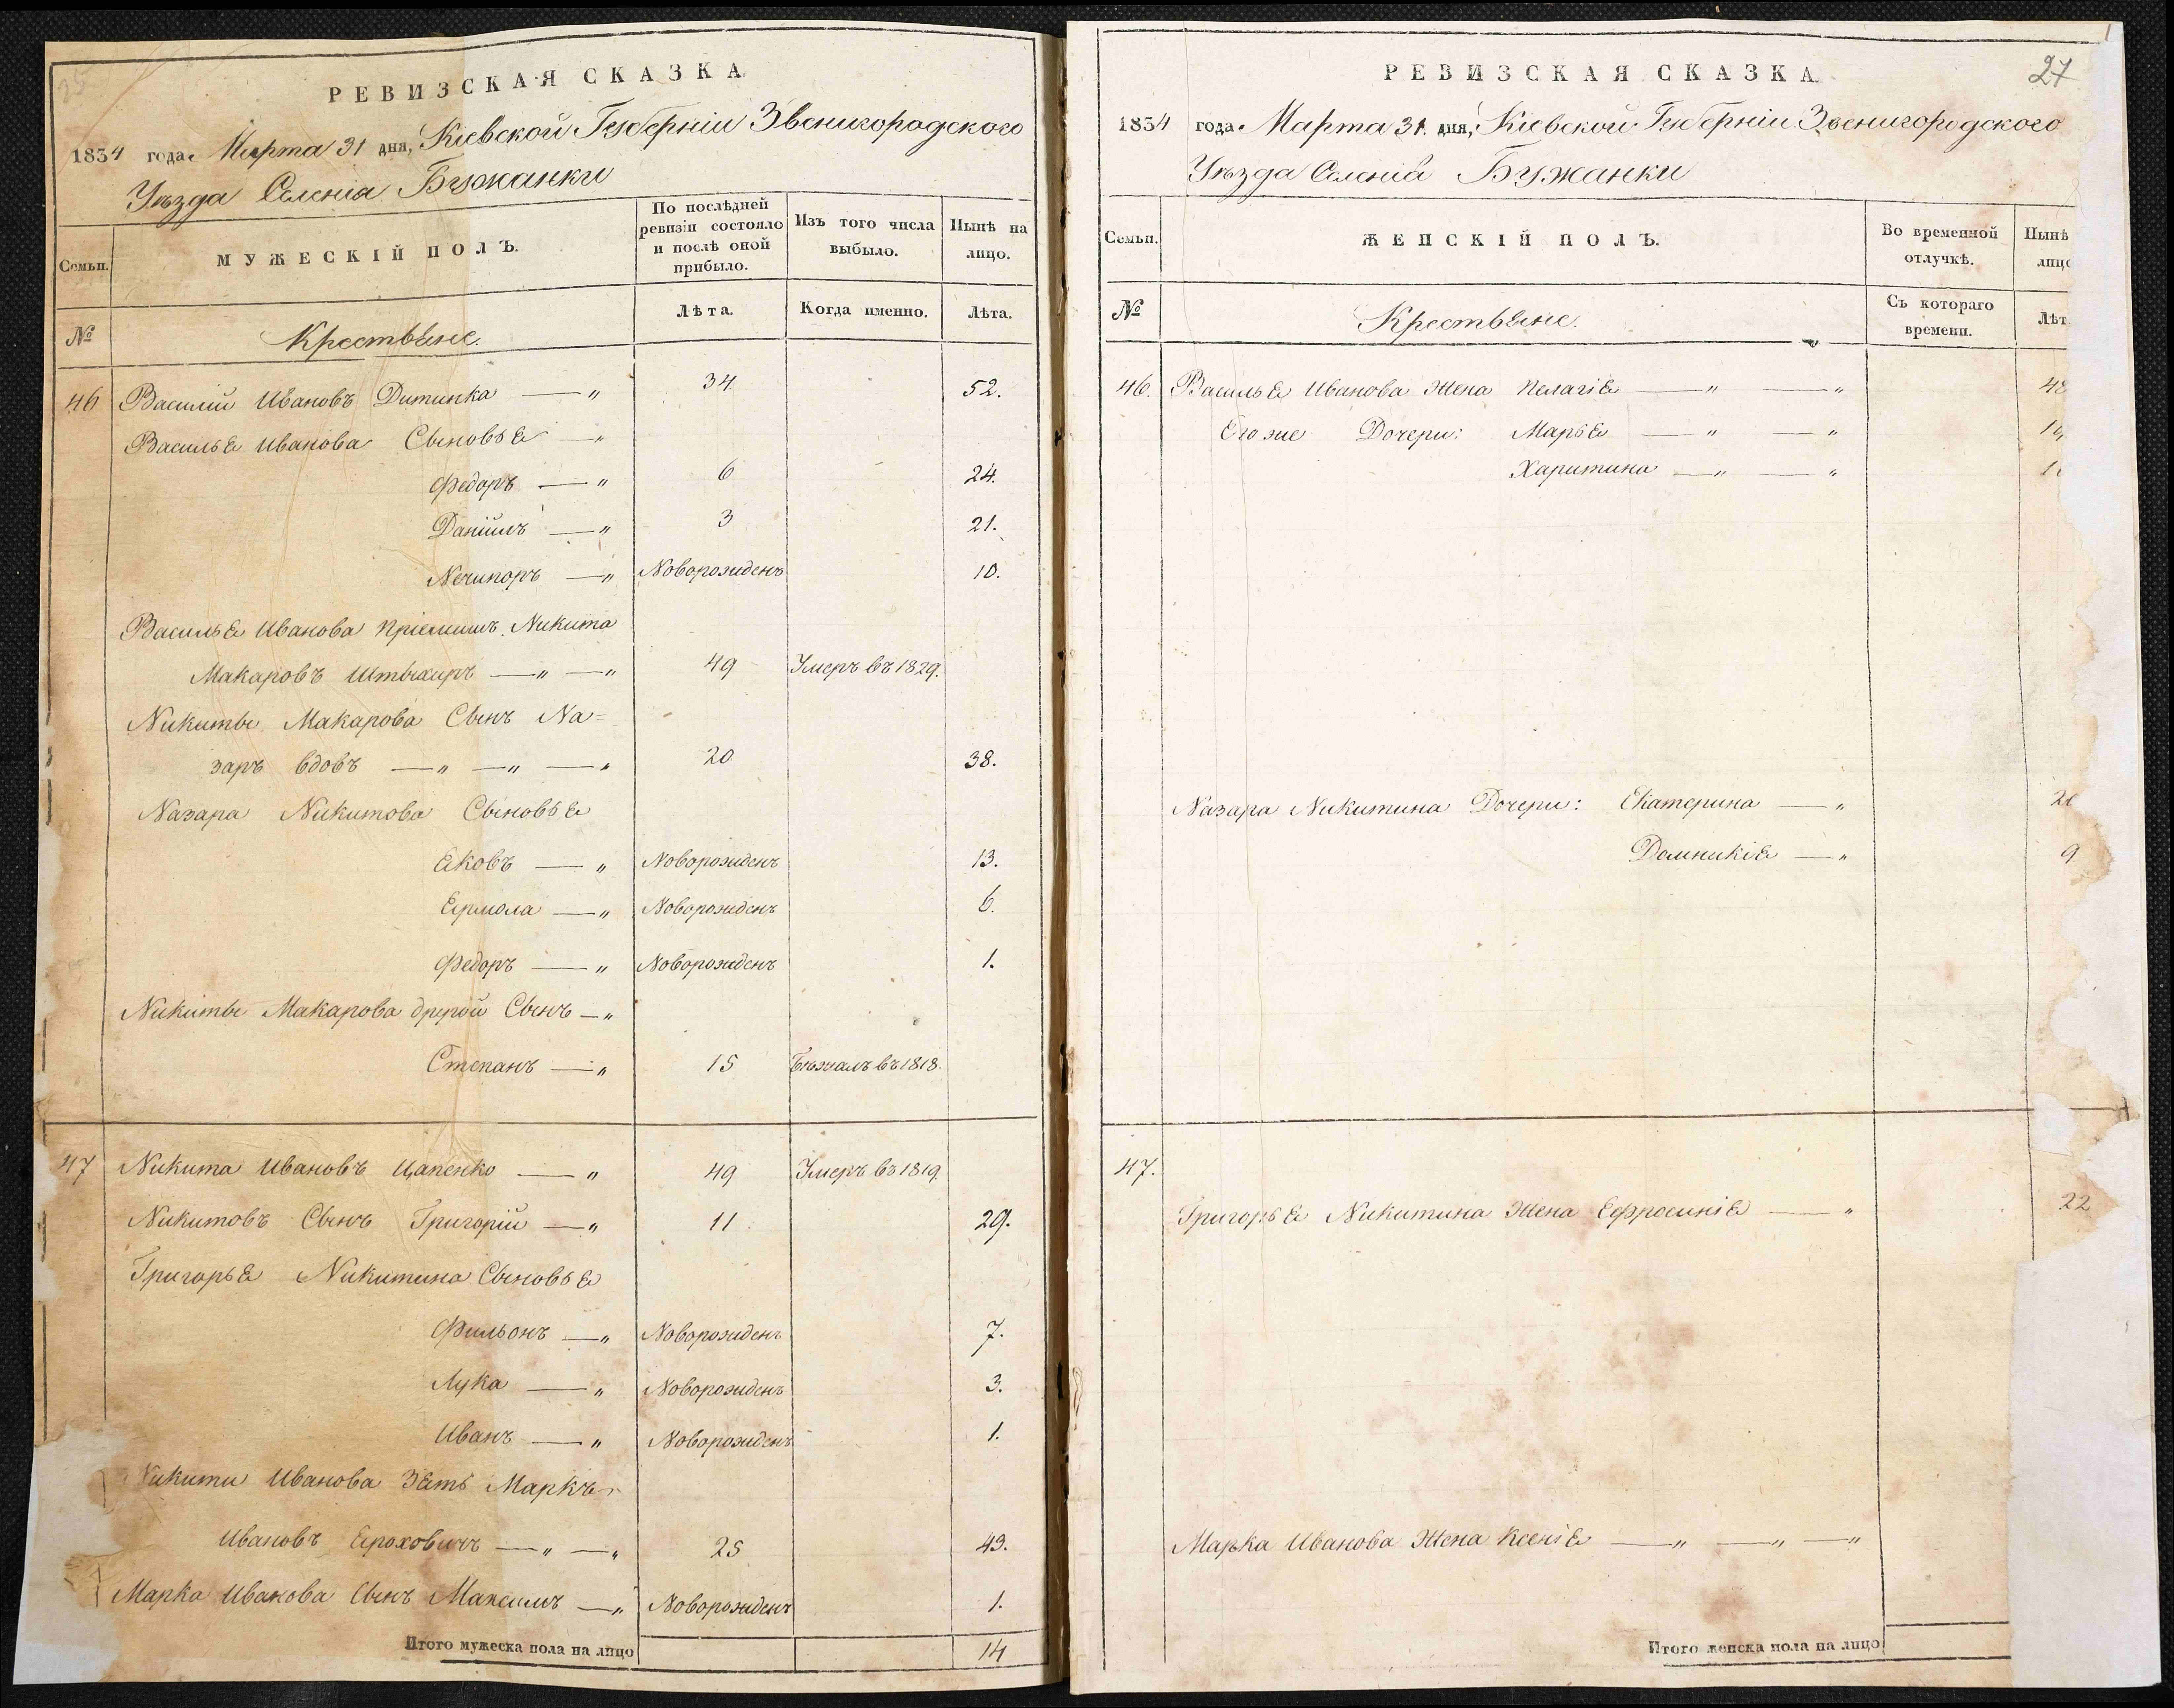 РЕВИЗСКАЯ СКАЗКА
1834 года Марта 31 дня, Кіевской Губерніи Звенигородского
Уѣзда Селенія Бужанки
Семьи.
МУЖЕСКІЙ ПОЛЪ.
По послѣдней ревизіи состояло и послѣ оной прибыло.
Изъ того числа выбыло.
Нынѣ на лицо.
№
Крестьяне.
Лѣта.
Когда именно.
Лѣта.
46 Василій Ивановъ Дитинка — " 34 52.
Василья Иванова Сыновья — "
Федоръ — " 6 24.
Даніилъ — " 3 21.
Нечипоръ — " Новорожденъ 10.
Василья Иванова Пріемышъ Никита
Макаровъ — " — " 49 Умеръ въ 1829.
Никиты Макарова Сынъ На=
заръ вдовъ — " — " — " 20 38.
Назара Никитова Сыновья
Яковъ — " Новорожденъ 13.
Ермола — " Новорожденъ 6.
Федоръ — " Новорожденъ 1.
Никиты Макарова другой Сынъ — "
Степанъ — " 15 Бѣжалъ въ 1818.
47 Никита Ивановъ Цапенко — " 49 Умеръ въ 1819.
Никитовъ Сынъ Григорій — " 11 29.
Григорья Никитина Сыновья
Фильонъ — " Новорожденъ 7.
Лука — " Новорожденъ 3.
Иванъ — " Новорожденъ 1.
Никити Иванова Зять Маркъ
Ивановъ Ероховичъ — " — " 25 43.
Марка Иванова Сынъ Максимъ — " Новорожденъ 1.
Итого мужеска пола на лицо 14
27
РЕВИЗСКАЯ СКАЗКА
1834 года Марта 31 дня, Кіевской Губерніи Звенигородского
Уѣзда Селенія Бужанки
Семьи.
ЖЕНСКІЙ ПОЛЪ.
Во временной отлучкѣ.
Нынѣ
лицо
№
Крестьяне.
Съ котораго времени.
Лѣт
46. Василья Иванова Жена Пелагія — " — "
Его же Дочери: Марья — " — "
Харитина — " — "
Назара Никитина Дочери: Екатерина — "
Домникія — " 9
47.
Григорья Никитина Жена Ефросинія — " 22
Марка Иванова Жена Ксенія — " — " — "
Итого женска пола на лицо